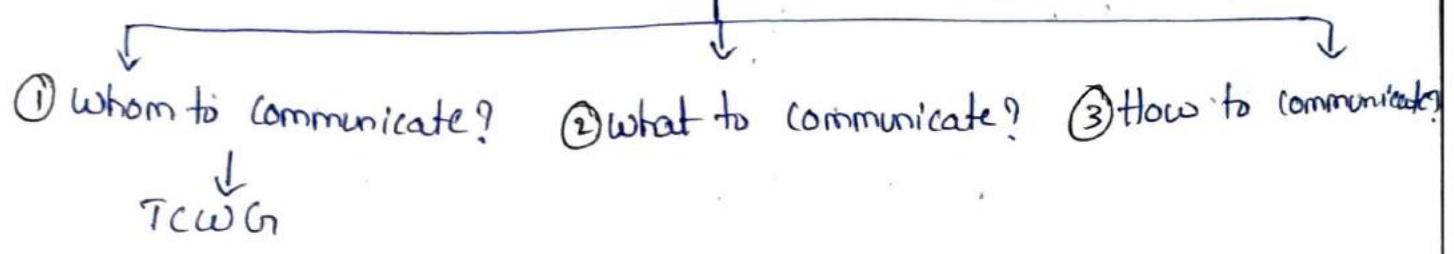 ① Whom to communicate? ② What to communicate? ③ How to communicate?
TCWG